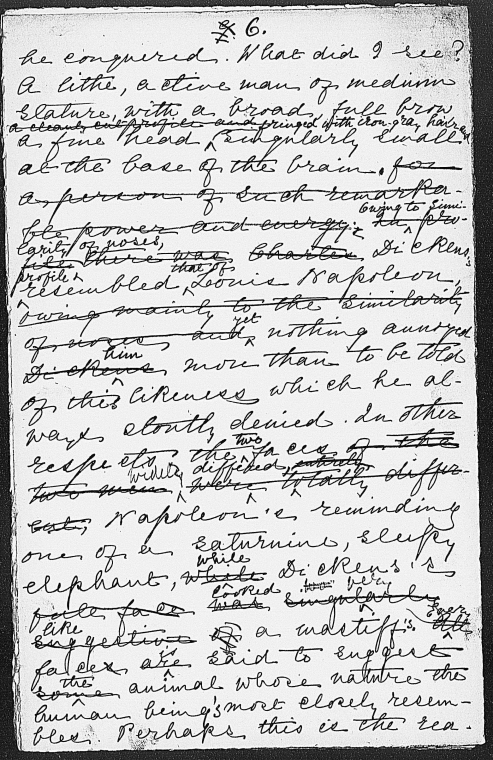 6.
he conquered. What did I see?
A lithe, active man of medium
stature, with a broad, full brow
a clean cut profile and fringed with iron-gray hair and
a fine head singularly small
at the base of the brain, for
a person of such remarka-
ble power and energy.
Owing to simi-
In pro-
larity of noses,
file there was Charles, Dickens's
profile that of
resembled Louis Napoleon's
owing mainly to the similarity
of noses and yet nothing annoyed
him
Dickens more than to be told
of this likeness which he al-
ways stoutly denied. In other
two
respects the faces of the
widely differed, entirely
two men were totally differ-
ent, Napoleon's reminding
one of a saturnine, sleepy
while
elephant, whole Dickens's
looked very
full face was singularly
like Every
suggestive of a mastiff's. All
faces are said to suggest
the
some animal whose nature the
human being's most closely resem-
bles. Perhaps this is the rea-